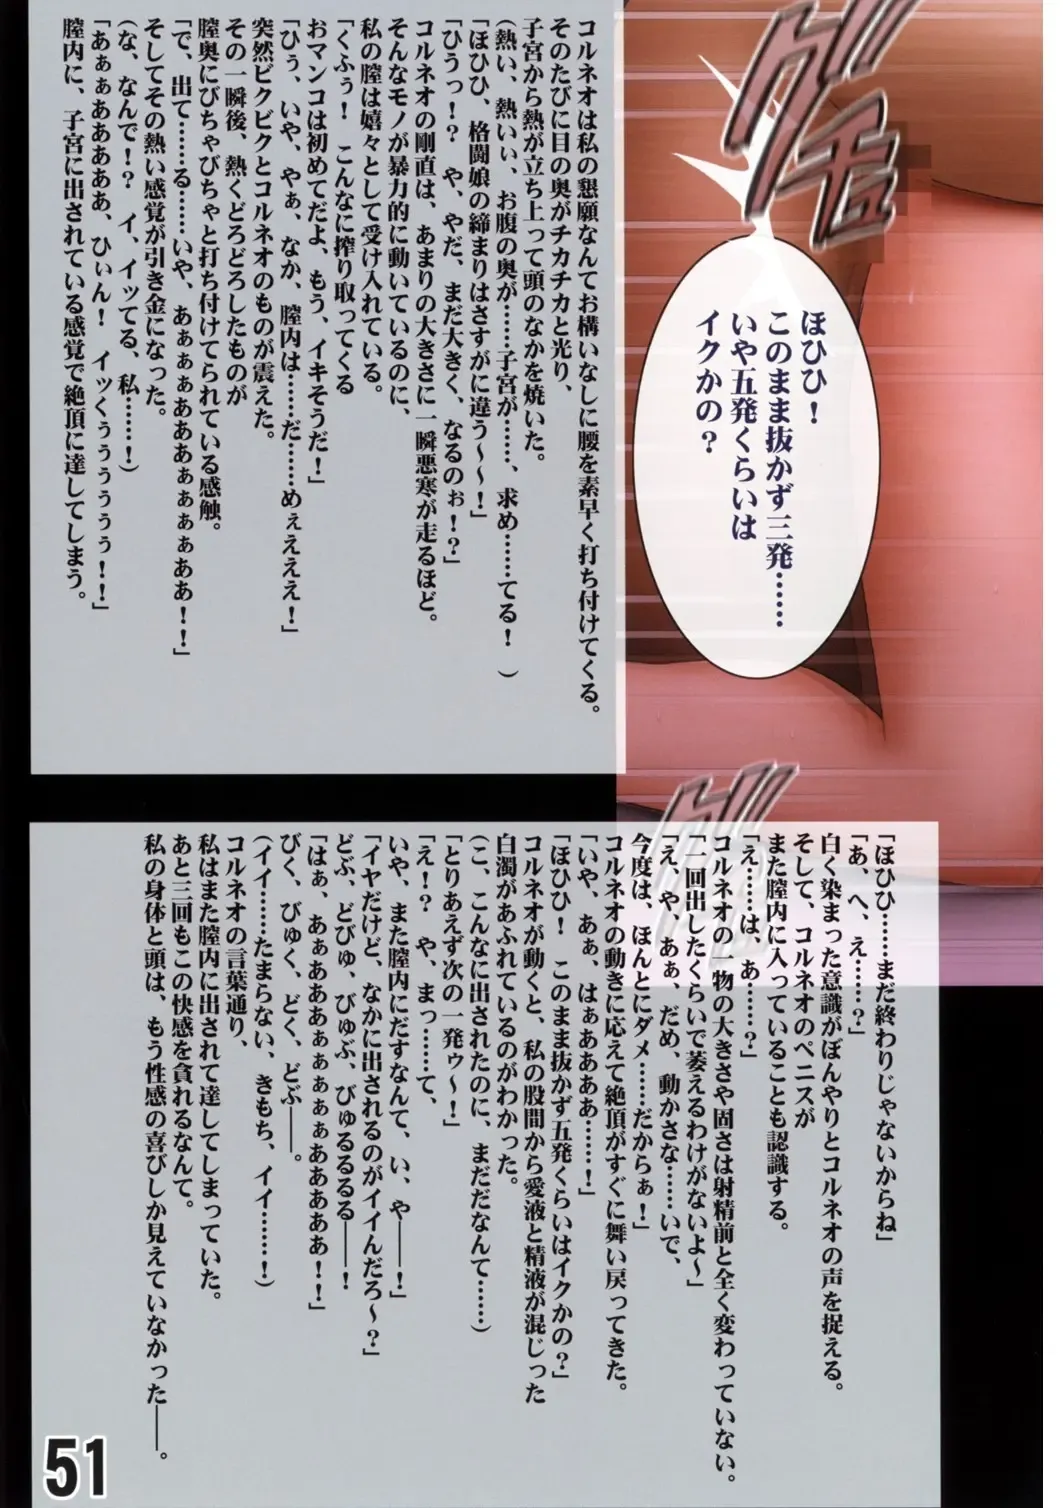 ほひひ！
このまま抜かず三発……
いや五発くらいは
イクかの？
グチュ
グチュ
コルネオは私の懇願なんてお構いなしに腰を素早く打ち付けてくる。
そのたびに目の奥がチカチカと光り、
子宮から熱が立ち上って頭のなかを焼いた。
(熱い、熱いぃ、お腹の奥が……子宮が……、求め……てる！　)
「ほひひ、格闘娘の締まりはさすがに違う～～！」
「ひうっ！？　や、やだ、まだ大きく、なるのぉ！？」
コルネオの剛直は、あまりの大きさに一瞬悪寒が走るほど。
そんなモノが暴力的に動いているのに、
私の膣は嬉々として受け入れている。
「くふぅ！　こんなに搾り取ってくる
おマンコは初めてだよ、もう、イキそうだ！」
「ひぅ、いや、やぁ、なか、膣内は……だ……めぇえええ！」
突然ビクビクとコルネオのものが震えた。
その一瞬後、熱くどろどろしたものが
膣奥にびちゃびちゃと打ち付けてられている感触。
「で、出て……る……いや、あぁぁぁあああぁぁぁぁああ！！」
そしてその熱い感覚が引き金になった。
(な、なんで！？　イ、イッてる、私……！)
「あぁぁあああああ、ひぃん！　イッくぅぅぅぅぅ！！」
膣内に、子宮に出されている感覚で絶頂に達してしまう。
「ほひひ……まだ終わりじゃないからね」
「あ、へ、え……？」
白く染まった意識がぼんやりとコルネオの声を捉える。
そして、コルネオのペニスが
また膣内に入っていることも認識する。
「え……は、あ……？」
コルネオの一物の大きさや固さは射精前と全く変わっていない。
「一回出したくらいで萎えるわけがないよ～」
「え、や、あぁ、だめ、動かさな……いで、
今度は、ほんとにダメ……だからぁ！」
コルネオの動きに応えて絶頂がすぐに舞い戻ってきた。
「いや、あぁ、はぁあああ……！」
「ほひひ！　このまま抜かず五発くらいはイクかの？」
コルネオが動くと、私の股間から愛液と精液が混じった
白濁があふれているのがわかった。
(こ、こんなに出されたのに、まだだなんて……)
「とりあえず次の一発ゥ～！」
「え！？　や、まっ……て、
いや、また膣内にだすなんて、い、や――！」
「イヤだけど、なかに出されるのがイイんだろ～？」
どぶ、どびゅ、びゅぶ、びゅるるるる――！
「はぁ、あぁあああぁぁぁぁあああああ！！」
びく、びゅく、どく、どぶ――。
(イイ……たまらない、きもち、イイ……！)
コルネオの言葉通り、
私はまた膣内に出されて達してしまっていた。
あと三回もこの快感を貪れるなんて。
私の身体と頭は、もう性感の喜びしか見えていなかった――。
51